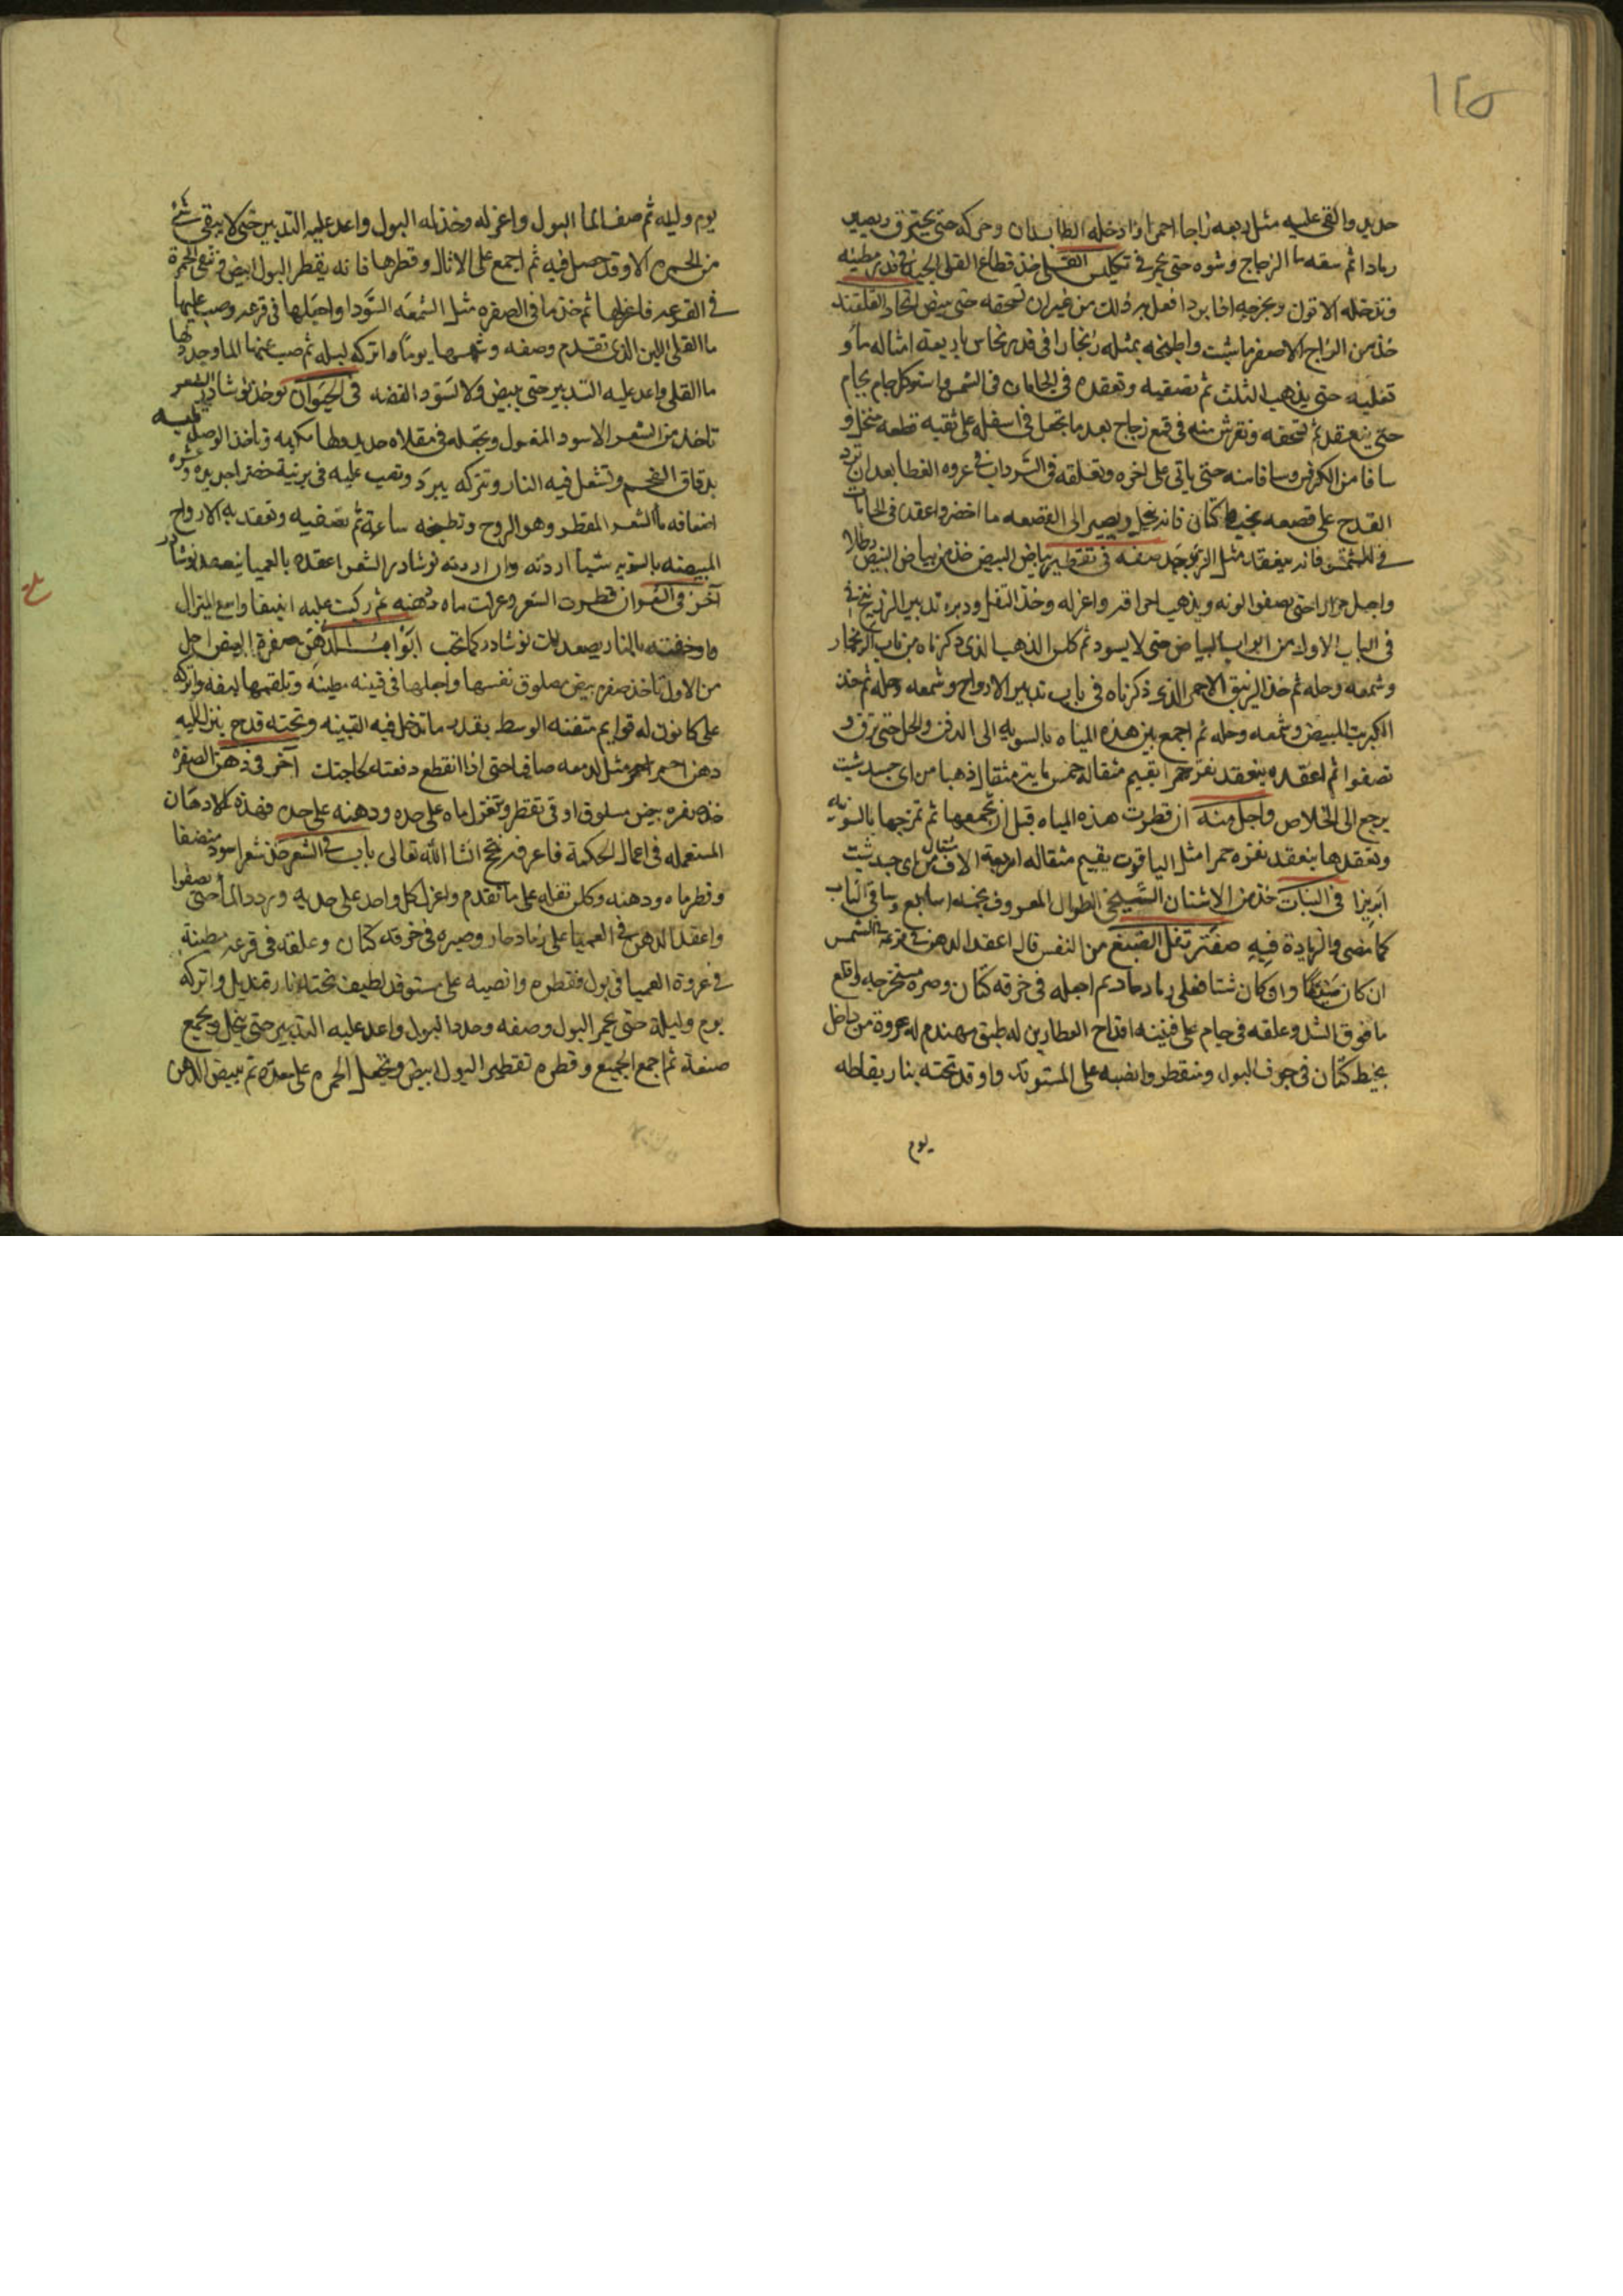 ١٢٥
حديد والقى عليه مثل ربعه زاجا احمرا وادخله الطابدان وحركه حتى يحترق ويصير
رمادا ثم سقه ما الزجاج وشوه حتى يحمر في تكليس القلى خذ قطاع القلى الجيد في قدر مطينه
وتدخله الاتون وتخرجه اذا برد افعل به ذلك من غير ان تسحقه حتى يبيض اتحاد القلقند
خذ من الزاج الاصفر ما شيت واطبخه بمثله زنجارا في قدر نحاس باربعة امثاله ما و
تغليه حتى يذهب الثلث ثم تصفيه وتعقده في الجامات في الشمس واستوكل جام بجام
حتى ينعقد ثم تسحقه وتفرش منه في قمع زجاج بعد ما تجعل في اسفله على ثقبه قطعه منخل و
سافا من الكرفس وسافا منه حتى ياتى على اخره وتعلقه في السرداب في عروه الغطا بعد ان ترد
القدح على قصعه بخيط كتان فانه ينحل ويصير الى القصعه ما اخضر واعقد في الجامات
في الشمس فانه ينعقد مثل الزبرجد صفه في تقطير بياض البيض خذ من بياض البيض رطالا
واجعل مرارا حتى يصفوا لونه ويذهب احراقه واعزله وخذ الثفل ودبره تدبير الزرنيخ في
في الباب الاول من ابواب البياض حتى لا يسود ثم كلس الذهب الذي ذكرناه من باب الزنجار
وشمعه وحله ثم خذ الزيبق الاحمر الذي ذكرناه في باب تدبير الارواح وشمعه وحله ثم خذ
الكبريت المبيض وشمعه وحله ثم اجمع بين هذه المياه بالسويه الى الدفن والحل حتى ترق و
تصفوا ثم اعقده ينعقد نقره حمرا يقيم مثقاله خمس مايه مثقال ذهبا من اى جسد شيت
يرجع الى الخلاص واجل منه ان قطرت هذه المياه قبل ان تجمعها ثم تمزجها بالسويه
وتعقدها ينعقد نقره حمرا مثل الياقوت يقيم مثقاله اربعة الاف مثقال من اى جسد شيت
ابريزا في النبات خذ من الاشنان الشيحي الطوال المعروف بخمسه اسابيع وساقي الباب
كما مضى والزيادة فيه صفه تفل الصبغ من النفس قال اعقد الدهن في قرعه في الشمس
ان كان صيفا وان كان شتا فعلى رماد حار ثم اجعله في خرقه كتان وصره مستخرجه واقلع
ما فوق الشد وعلقه في جام على قنينه اقداح العطارين له طبق مهندم له عروة من داخل
بخيط كتان في جوف البول ويتقطر وانصبه على المستوقد واوقد تحته بنار يقاطه
يوم
يوم وليله ثم صف الما البول واعزله وخذ له البول واعد عليه التدبير حتى لا يبقى شئ
من الحمره الا وقد حصل فيه ثم اجمع على الاثال وقطرها فانه يقطر البول ابيض وتبقى الحمرة
في القرعه فاعزلها ثم خذ ما في الصفره مثل الشمعه السودا واجعلها في قرعه وصب عليها
ما القلى اللين الذى تقدم وصفه وشمسها يوما واتركه ليله ثم صب عنها الما وجدد لها
ما القلى واعد عليه التدبير حتى يبيض ولا تسود الفضه في الحيوان توخذ نوشادر الشعر
تاخذ من الشعر الاسود المغسول وتجعله في مقلاه حديد وطا
بدقاق الفحم وتشعل فيه النار وتتركه يبرد وتصب عليه في برنية خضرا جديده وعشره
اضعافه ما الشعر المقطر وهو الروح وتطبخه ساعة ثم تصفيه وتعقد به الارواح
المبيضه بالسويه شيا اردته وان اردته نوشادر الشعر اعقده بالعميا يصعد نوشادر
آخر في الشعر ان قطرت الشعر وعزلت ماه ودهنه ثم ركبت عليه انبيقا واسع الميزاب
ما وخففته بالنار يصعد لك نوشادر كما تحب ابواب الدهن صفرة البيض اجل
من الاول تاخذ صفره بيض مصلوق نفسها واجعلها في قنينه مطينه وتلقمها ليفه واتركه
على كانون له قوايم مثقبه الوسط بقدر ما تدخل فيه القنينه وتحته قدح ينزل اليه
دهن احمر احمر مثل الدمعه صافيا حتى اذا انقطع دفعته لحاجتك آخر في دهن الصفره
خذ صفره بيض مسلوق او نى تقطر وتعزل ماه على حده ودهنه على حده فهذه الادهان
المستعمله في اعمال الحكمة فاعرفه تنجح انشا الله تعالى باب في الشعر خذ شعرا اسود
وقطر ماه ودهنه وكلس ثفله على ما تقدم واعزل كل واحد على حديه وردد الما حتى يصفوا
واعقد الدهن في العميا على رماد حار وصيره في خرقه كتان وعلقه في قرعه مطينه
في عروة العميا في بول فقطره وانصبه على مستوقد لطيف تحته نار قنديل واتركه
يوم وليلة حتى يحمر البول وصفه وجدد البول واعد عليه التدبير حتى ينحل ويجمع
صبغه ثم اجمع الجميع وقطره تقطير البول ابيض وتجعل الحمره على حده ثم تبيض الدهن